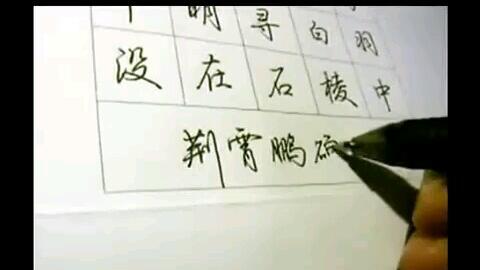 明寻白羽
没在石棱中
荆霄鹏